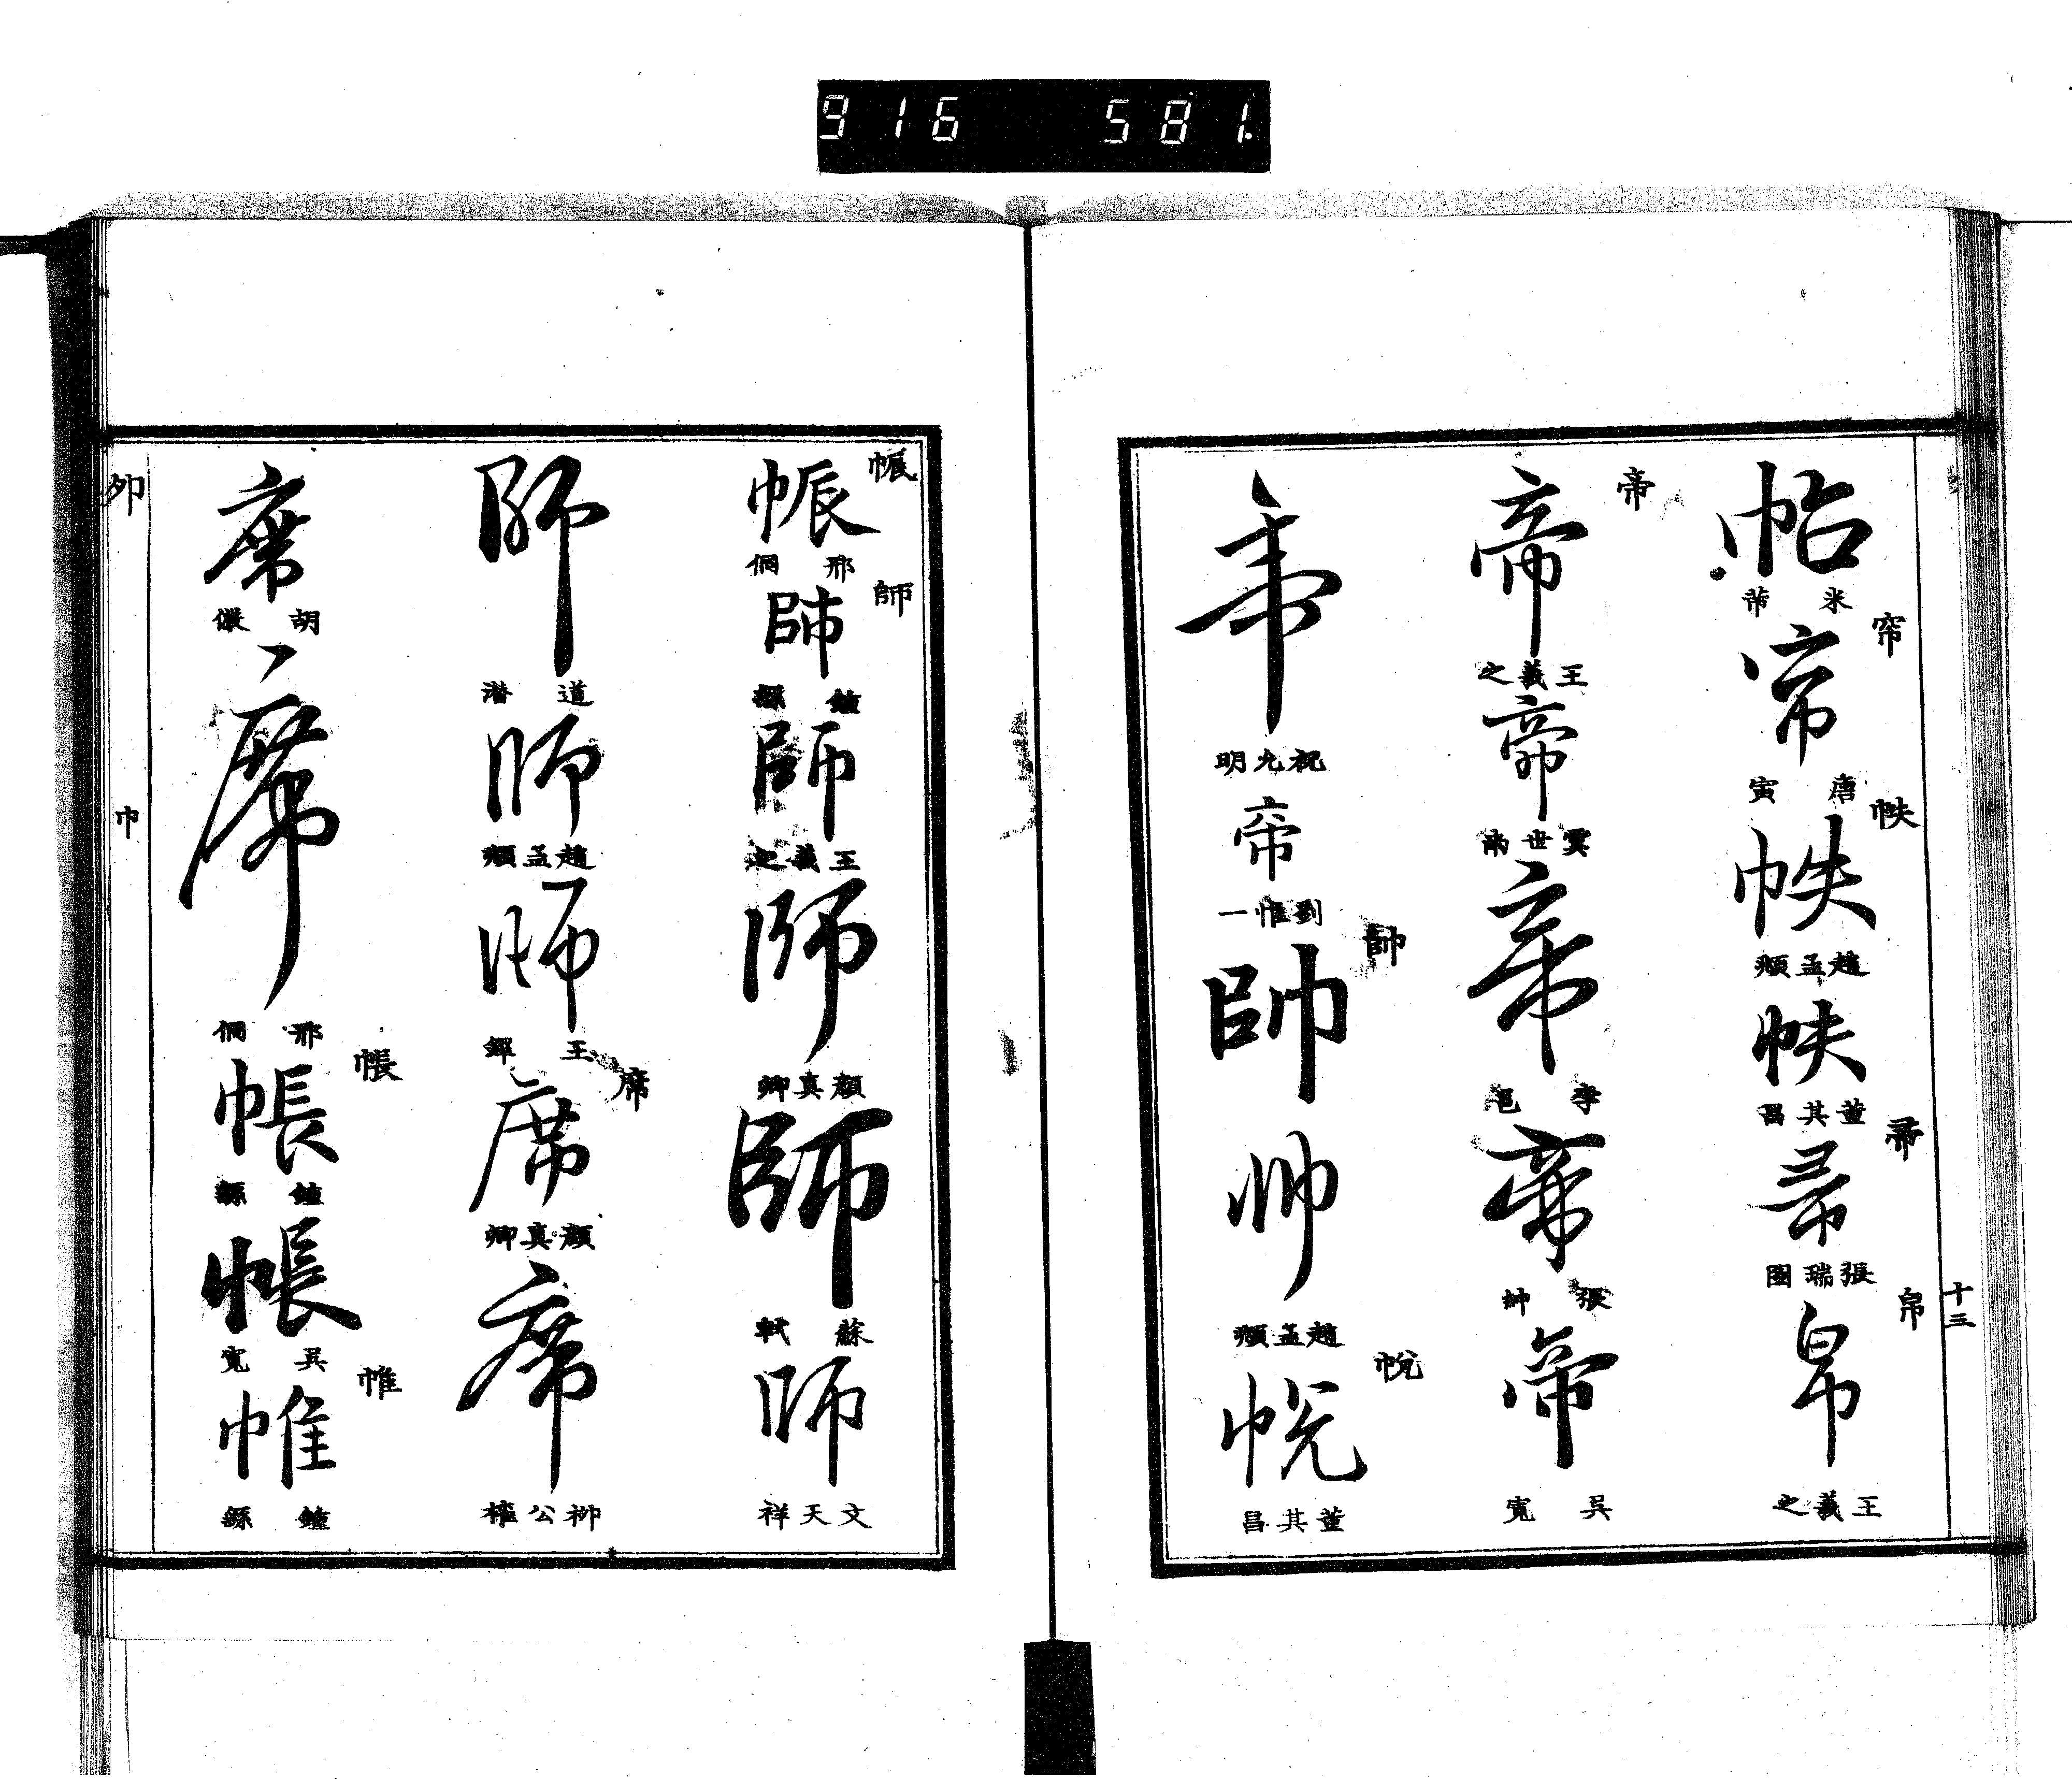 916 581.
十三
帖
米芾
帘
帘
唐寅
帙
帙
趙孟頫
帙
董其昌
帚
帚
張瑞圖
帛
帛
王羲之
帝
帝
王羲之
帝
虞世南
帝
李邕
帝
帝
吳寬
帝
祝允明
帝
一
帥
帥
帥
趙孟頫
帨
帨
董其昌
帪
帪
邢侗
師
師
鍾繇
師
王羲之
師
顏真卿
師
蘇軾
師
文天祥
師
道潛
師
趙孟頫
師
王鐸
席
席
顏真卿
席
柳公權
席
胡儼
席
邢侗
帳
帳
鍾繇
帳
吳寬
帷
帷
鍾繇
卯
巾